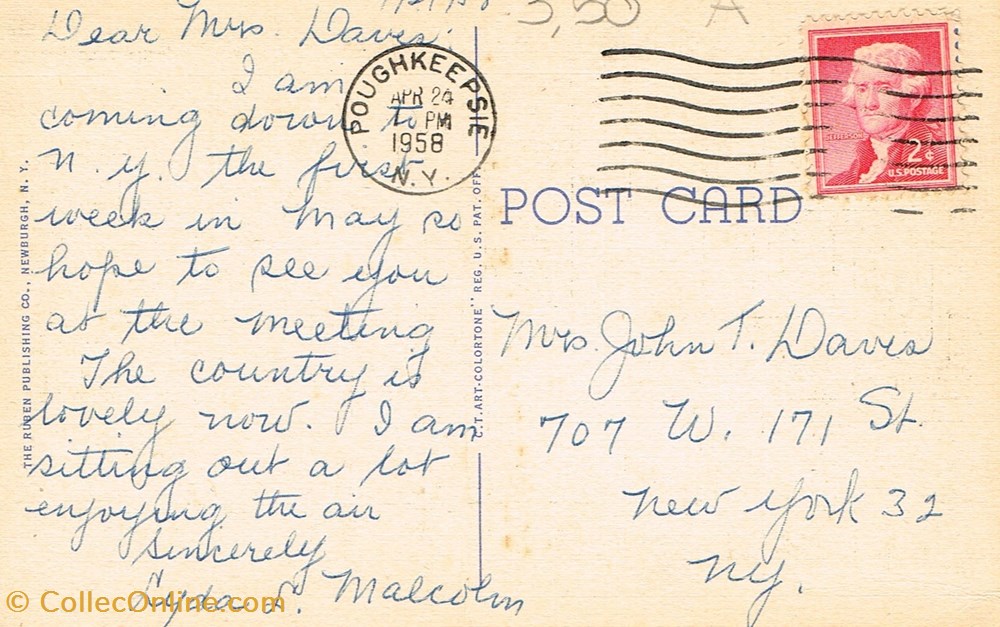 5,50 A
Dear Mrs. Davis:
I am
coming down to
N.Y. the first
week in May so
hope to see you
at the meeting
The country is
lovely now. I am
sitting out a lot
enjoying the air
Sincerely
L. Malcolm
POUGHKEEPSIE
APR 24
PM
1958
N.Y.
JEFFERSON
2¢
U.S. POSTAGE
POST CARD
Mrs. John T. Davis
707 W. 171 St.
New York 32
N.Y.
THE RUBEN PUBLISHING CO., NEWBURGH, N. Y.
C.T. ART-COLORTONE" REG. U.S. PAT. OFF.
© CollecOnline.com